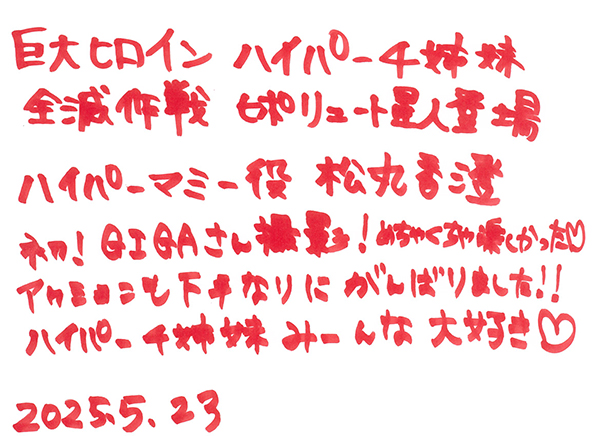 巨大ヒロイン ハイパー4姉妹
全滅作戦 ヒポリュート星人登場
ハイパーマミー役 松丸香澄
初! GIGAさん撮影! めちゃくちゃ楽しかった♡
アクションも下手なりに がんばりました!!
ハイパー4姉妹 みーんな 大好き♡
2025.5.23